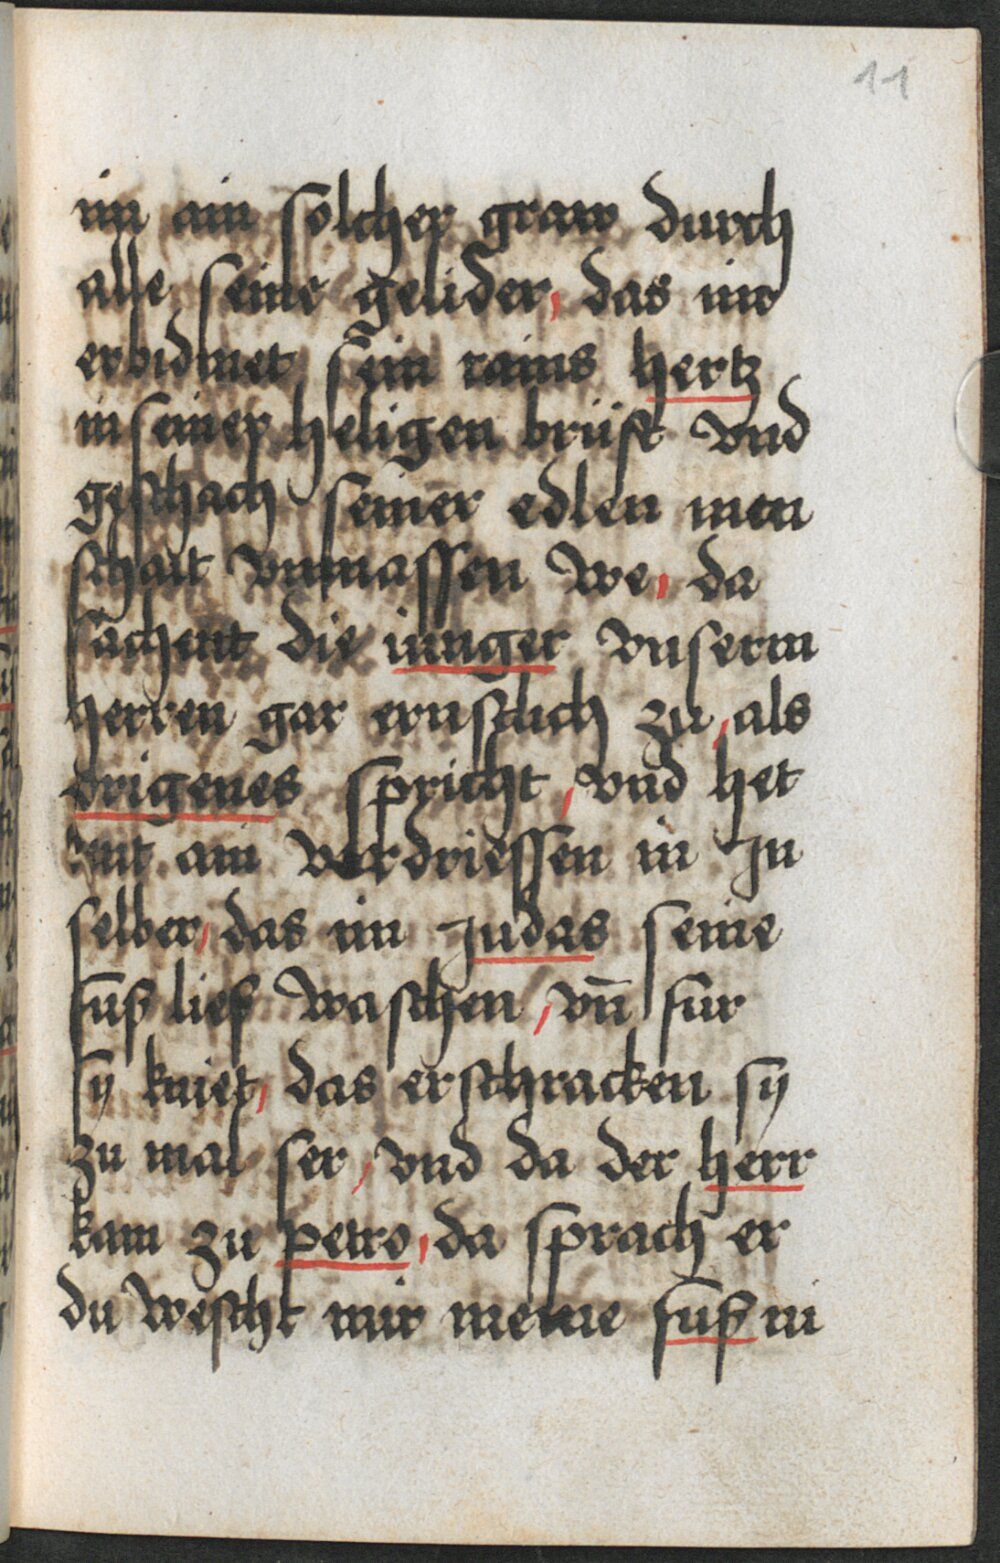 11
im ain solcher graw durch
alle seine gelider, das im
erbidmet sein rains hertz
in seiner heligen brüst vnd
geschach seiner edlen men
schait vnmassen we, da
sachent die iunger vnserm
herren gar ernstlich zu, als
origenes spricht, vnd het
ain verdriessen in In
selber, das im Judas seine
füß ließ waschen, vn̄ für
sÿ kniet, das erschracken sÿ
zu mal ser, vnd da der herr
kam zu petro, da sprach er
du wescht mir meine füß ni